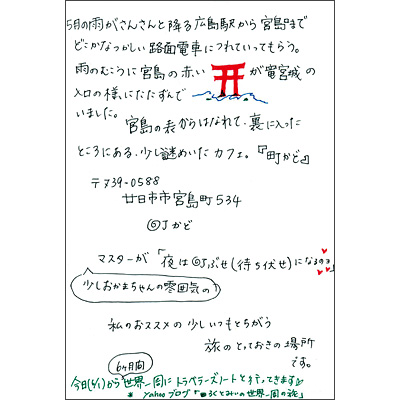 5月の雨がさんさんと降る広島駅から宮島まで
どこかなつかしい路面電車につれていってもらう。
雨のむこうに宮島の赤い が竜宮城の
入口の様にたたずんで
いました。
宮島の表からはなれて、裏に入った
ところにある、少し謎めいたカフェ。『町かど』
〒739-0588
廿日市市宮島町534
◎Jかど
マスターが「夜は◎Jぶせ(待ち伏せ)になるのよ」
少しおかまちゃんの雰囲気の
私のおススメの少しいつもとちがう
旅のとっておきの場所
です。
6ヶ月間
今日(6/1)から世界一周にトラベラーズノートと行ってきます
* Yahooブログ「くとみぃの世界一周の旅」